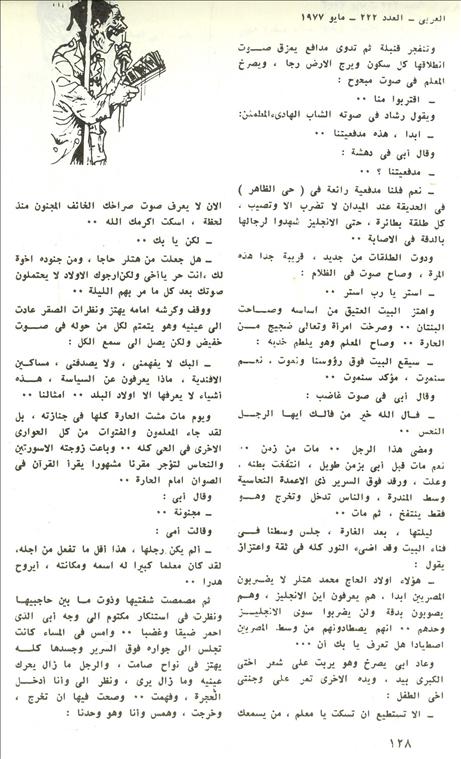 العربى ــ العدد ٢٢٢ ــ مايو ١٩٧٧
وتنفجر قنبلة ثم تدوى مدافع يمزق صـــوت
انطلاقها كل سكون ويرج الارض رجا ، ويصرخ
المعلم فى صوت مبحوح :
ــ اقتربوا منا ٠٠
ويقول رشاد فى صوته الشاب الهادىء المطمئن:
ــ ابدا ، هذه مدفعيتنا ٠٠
وقال أبى فى دهشة :
ــ مدفعيتنا ؟ ٠٠
ــ نعم فلنا مدفعية رائعة فى ( حى الظاهر )
فى الحديقة عند الميدان لا تضرب الا وتصيب ،
كل طلقة بطائرة ، حتى الانجليز شهدوا لرجالها
بالدقة فى الاصابة ٠٠
ودوت الطلقات من جديد ، قريبة جدا هذه
المرة ، وصاح صوت فى الظلام :
ــ استر يا رب استر ٠٠
واهتز البيت العتيق من اساسه وصـــاحت
البنتان ٠٠ وصرخت امرأة وتعالى ضجيج مـــن
الحارة ٠٠ وصاح المعلم وهو يلطم خديه :
ــ سيقع البيت فوق رؤوسنا ونموت ، نعـــم
سنموت ، مؤكد سنموت ٠٠
وقال أبى فى صوت غاضب :
ــ فال الله خير من فالك ايها الرجـــل
التعس ٠٠
ومضى هذا الرجل ٠٠ مات من زمن ٠٠
نعم مات قبل أبى بزمن طويل ، انتفخت بطنه ،
وعلت ، ورقد فوق السرير ذى الاعمدة النحاسية
وسط المندرة ، والناس تدخل وتخرج وهـــو
فقط ينتفخ ، ثم مات ٠٠
ليلتها ، بعد الغارة ، جلس وسطنا فـــى
فناء البيت وقد اضىء النور كله فى ثقة واعتزاز
يقول :
ــ هؤلاء أولاد الحاج محمد هتلر لا يضـربون
المصريين ابدا ، هم يعرفون أين الانجليز ، وهـم
يصوبون بدقة ولن يضربوا سوى الانجليـــز
وحدهم ٠٠ انهم يصطادونهم من وسط المصريين
اصطيادا هل تعرف يا بك أن ٠٠٠
وعاد أبى يصرخ وهو يربت على شعر اختى
الكبرى بيد ، ويده الاخرى تمر على وجنتى
اخى الطفل :
ــ الا تستطيع ان تسكت يا معلم ، من يسمعك
الان لا يعرف صوت صراخك الخائف المجنون منذ
لحظة ، اسكت اكرمك الله ٠٠
ــ لكن يا بك ٠٠
ــ هل جعلت من هتلر حاجا ، ومن جنوده اخوة
لك ،انت حر ياأخى ولكن ارجوك الاولاد لا يحتملون
صوتك بعد كل ما مر بهم الليلة ٠٠
ووقف وكرشه امامه يهتز ونظرات الصقر عادت
الى عينيه وهو يتمتم لكل من حوله فى صـــوت
خفيض ولكن يصل الى سمع الكل :
ــ البك لا يفهمنى ، ولا يصدقنى ، مساكـين
الافندية ، ماذا يعرفون عن السياسة ، هـــذه
أشياء لا يعرفها الا اولاد البلد ٠٠ امثالنا ٠٠
ويوم مات مشت الحارة كلها فى جنازته ، بل
لقد جاء المعلمون والفتوات من كل الحوارى
الاخرى فى الحى كله ٠٠ وباعت زوجته الاسورتين
والنحاس لتؤجر مقرئا مشهورا يقرأ القرآن فى
الصوان امام الحارة ٠٠
وقال أبى :
ــ مجنونة ٠٠
وقالت أمى :
ــ ألم يكن رجلها ، هذا أقل ما تفعل من اجله،
لقد كان معلما كبيرا له اسمه ومكانته ، أيروح
هدرا ٠٠
ثم مصمصت شفتيها وذوت ما بين حاجبيها
ونظرت فى استنكار مكتوم الى وجه أبى الذى
احمر ضيقا وغضبا ٠٠ وامس فى المساء كانت
تجلس الى جواره فوق السرير وجسدها كلـــه
يهتز فى نواح صامت ، والرجل ما زال يحرك
عينيه وما زال يرى ، ونظر الى وأنا أدخـــل
الحجرة ، وفهمت ٠٠ وصحت فيها ان تخرج ،
وخرجت ، وهمس وأنا وهو وحدنا :
١٢٨